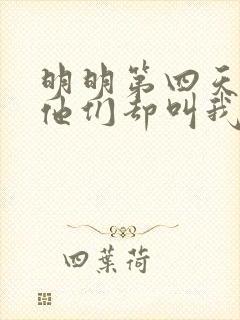 明明第四天
他们却叫我
四葉荷